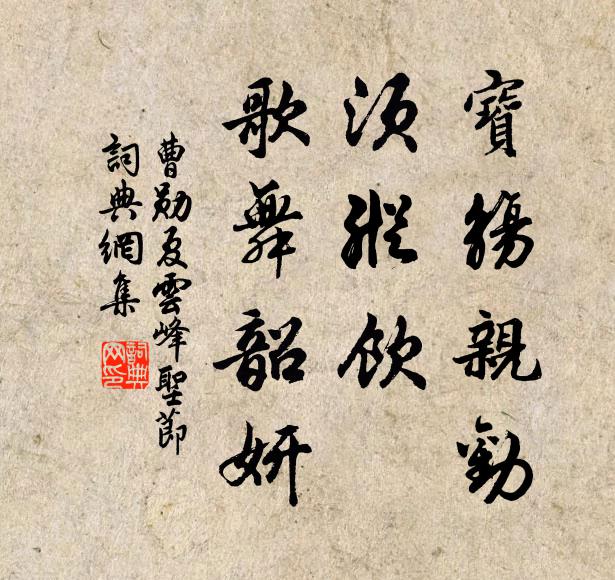 寶觴親勸
須縱飲
歌舞韶妍
曹勛夏雲峰聖節
詞典網集
詞典
网印